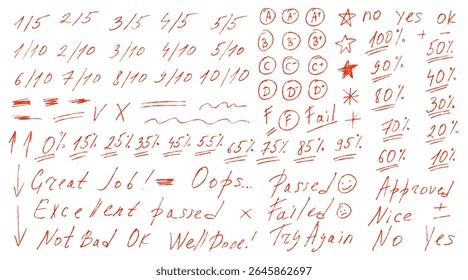 1/5 2/5 3/5 4/5 5/5 A A⁻ A⁺ no yes ok
1/10 2/10 3/10 4/10 5/10 B B⁻ B⁺ 100% + - 50%
6/10 7/10 8/10 9/10 10/10 C C⁻ C⁺ 90% 40%
D D⁻ D⁺ 80% 30%
V X F F Fail + 70% 20%
0% 15% 25% 35% 45% 55% 65% 75% 85% 95% 60% 10%
Great Job! Oops... Passed Approved
Excellent passed x Failed Nice ±
Not Bad OK Well Done! Try Again No Yes
shutterstock
IMAGE ID: 2645862697
www.shutterstock.com